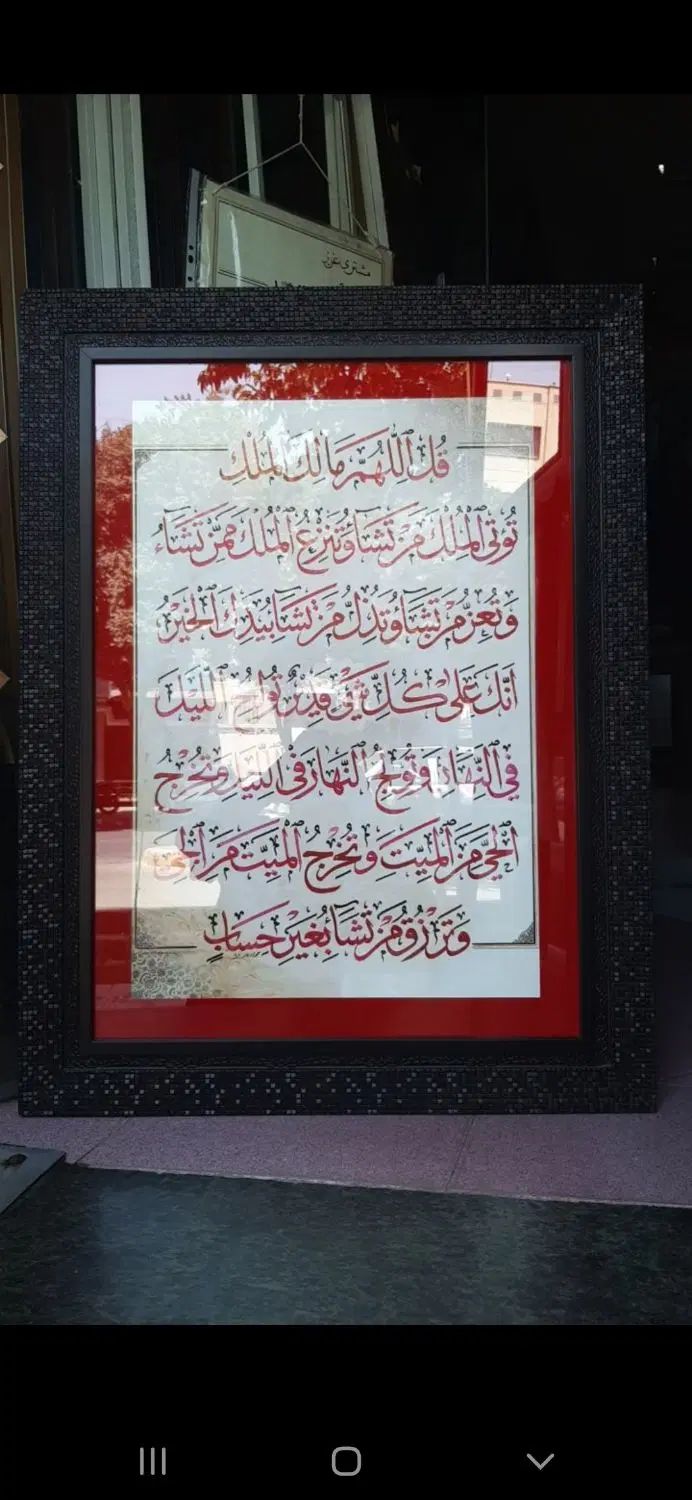 مشتری عزیز
قُل اللَّهُمَّ مَالِكَ المُلكِ
تُوتی المُلكَ مَن تَشَاءُ وَتَنزِعُ المُلكَ مِمَّن تَشَاءُ
وَتُعِزُّ مَن تَشَاءُ وَتُذِلُّ مَن تَشَاءُ بِیَدِكَ الخَیرُ
اَنَّكَ عَلیٰ كُلِّ شَیءٍ قَدیرٌ تُولِجُ اللَّیلَ
فِی النَّهَارِ وَتُولِجُ النَّهَارَ فی اللَّیلِ وَتُخرِجُ
الحَیَّ مِنَ المَیِّتِ وَتُخرِجُ المَیِّتَ مِنَ الحَیِّ
وَتَرزُقُ مَن تَشَاءُ بِغَیرِ حِسَابٍ